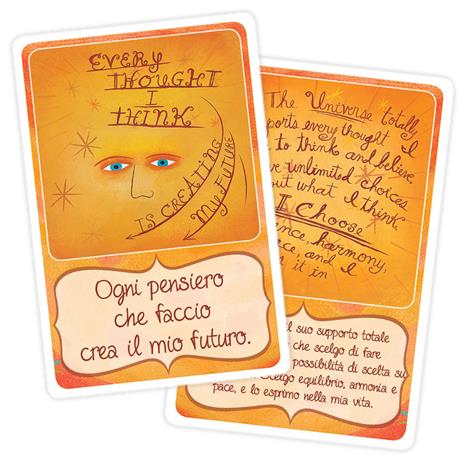 EVERY
THOUGHT
I
THINK
IS CREATING
MY FUTURE
Ogni pensiero
che faccio
crea il mio futuro.
The Universe totally
ports every thought I
to think and believe
unlimited choices
out what I think.
I Choose
ance, harmony,
ce, and I
it in
il suo supporto totale
che scelgo di fare
possibilità di scelta su
celgo equilibrio, armonia e
pace, e lo esprimo nella mia vita.